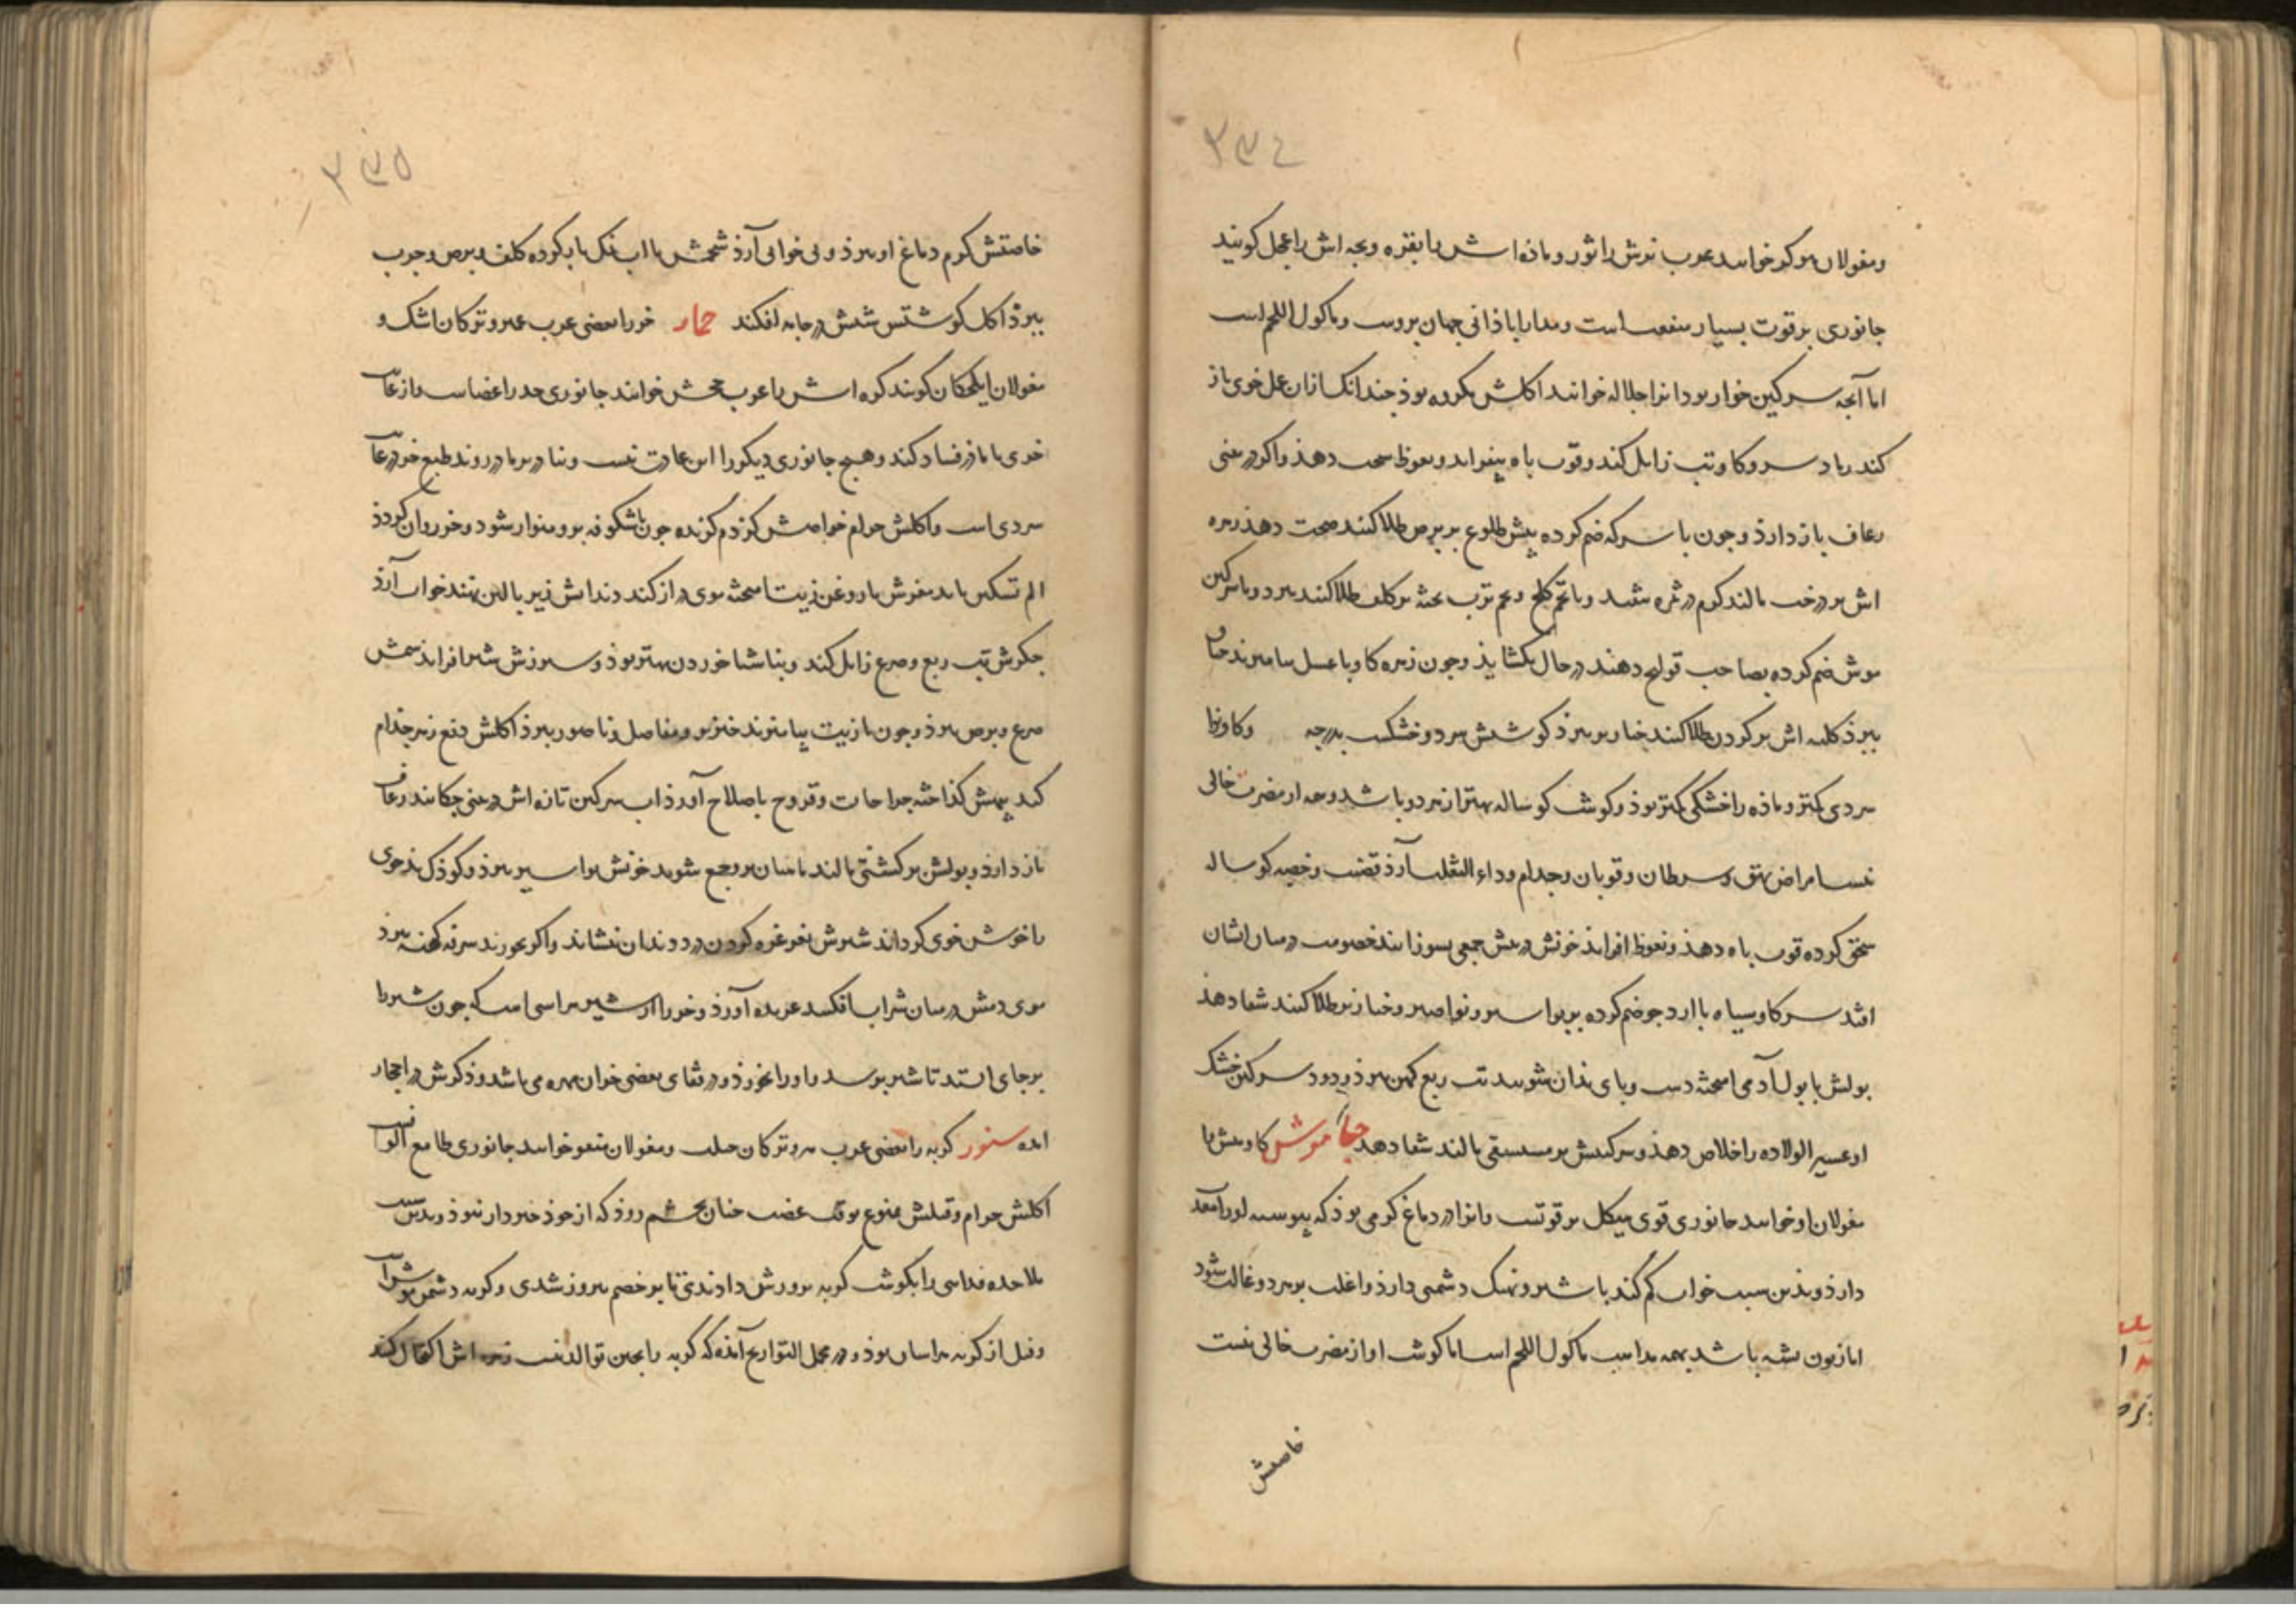 ۳۳٤
و مغولان هوکر خوانند عرب نرش را ثور و ماده اش را بقره و بچه اش را عجل کویند
جانوری پر قوت بسیار منفعت است و مدار اباذانی جهان بروست و ماکول اللحم است
اما آنچه سرکین خوار بود انرا جلاله خوانند اکلش مکروه بوذ چندانک ازان علف خوی باز
کند رماد سرو کاو تب زایل کند و قوت باه بیفزاید و نعوظ سخت دهذ و اکر در بینی
رعاف باز دارذ و چون با سرکه ضم کرده پیش طلوع بر برص طلا کنند صحت دهذ زهره
اش بر درخت مالند کرم در ثمره نیفتد و با تخم و تخم ترب پخته بر کلف طلا کنند ببرد و با سرکین
موش ضم کرده بصاحب قولنج دهند در حال بکشاید و چون زهره کاو با عسل بیامیزند خناق
ببرذ کلیه اش بر کردن طلا کنند خنازیر ببرذ کوشتش سرد و خشکست بدرجه و کاو نر را
سردی کمتر و ماذه را خشکی کمتر بوذ و کوشت کوساله بهتر از هر دو باشد و همه از مضرت خالی
نیست امراض بهق و سرطان و قوبا و جذام و داء الثعلب آرذ قضیب و خصیه کوساله
سحق کرده قوت باه دهذ و نعوظ افزاید خونش در پیش جمعی بسوزانند خصومت در میان ایشان
افتد سرکاو سیاه با ارد جو ضم کرده بر بواسیر و نواصیر و خنازیر طلا کنند شفا دهذ
بولش با بول آدمی آمیخته دست و پای بذان شویند تب ربع کهن ببرذ و دود سرکین خشک
او عسیر الولاده را خلاص دهذ و سرکینش بر مستسقی مالند شفا دهد جاموش کاومیش را
مغولان اوخوانند جانوری قوی هیکل پر قوتست و انرا در دماغ کرمی بوذ که پیوسته اورا معذب
دارذ و بذین سبب خواب کم کند با شیر و نهنک دشمنی دارذ و اغلب بر هر دو غالب شود
اما زبون پشه باشد بهمه مذاهب ماکول اللحم است اما کوشت او از مضرت خالی نیست
خاصیتش
۳۳۵
خاصیتش کرم دماغ او ببرذ و بی خوابی آرذ شحمش با اب نمک یار کرده کلف و برص و جرب
ببرذ اکل کوشتش شپش در جامه افکند حمار خر را بعضی عرب عیر و ترکان اشک و
مغولان ایلجکان کویند کره اش را عرب جحش خوانند جانوری جلد اعضاست و از غایت
خری با ماذر فساد کند و هیچ جانوری دیکر را این عادت نیست و بنادر بر ماذر روند طبع خر در غایت
سردی است و اکلش حرام خواصش کژدم کزیده چون باشکونه برو سوار شود و خر روان کردذ
الم تسکین یابد مغزش با روغن زیت امیخته موی دراز کند دندانش زیر بالین نهند خواب آرذ
جکرش تب ربع و صرع زایل کند و بناشتا خوردن بهتر بوذ و سپرزش شیر افزاید سمش
صرع و برص ببرذ و چون با زیت بیامیزند خنزیر و مفاصل و ناصور ببرذ اکلش دفع زهر جذام
کند پیهش کذاخته جراحات و قروح باصلاح آورذ اب سرکین تازه اش در بینی چکانند رعاف
باز دارذ و بولش بر کشتی مالند ماهیان برو جمع شوند خونش بواسیر ببرذ و کوذک بدخوی
را خوش خوی کرداند شیرش بغرغره کردن درد دندان بنشاند و اکر بخورند سرفه کهنه ببرذ
موی دمش در میان شراب افکنند عربده آورذ و خر را از شیر هراسی است که چون شیر را
بر جای ایستد تا شیر برسد و او را بخورذ و در قفای بعضی خران مهره می باشد و ذکرش در احجار
امده سنور کربه را بعضی عرب هر و ترکان و مغولان خوانند جانوری طامع الوفست
اکلش حرام و قتلش ممنوع بوقت غضب چنان بخشم روذ که از خوذ خبردار نبوذ و بدین سبب
ملاحده فدایی را بکوشت کربه پرورش دادندی تا بر خصم پیروز شدی و کربه دشمن موش است
و فیل از کربه هراسان بوذ و در مجمل التواریخ آمذه که کربه را بچین توالد نیست زهره اش اکتحال کنند